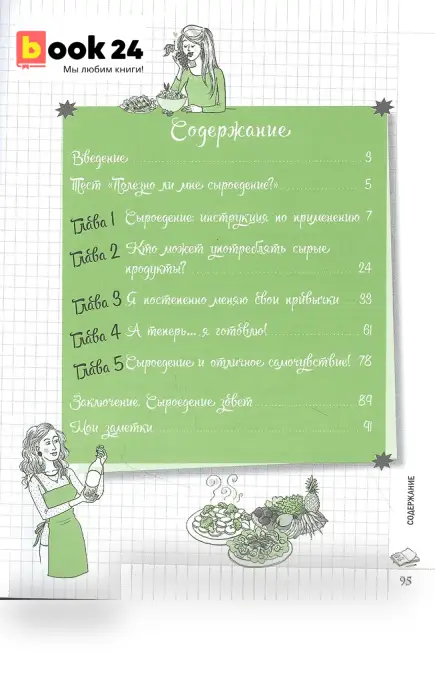 book 24
Мы любим книги!
Содержание
Введение 3
Тест «Полезно ли мне сыроедение?» 5
Глава 1 Сыроедение: инструкция по применению 7
Глава 2 Кто может употреблять сырые
продукты? 24
Глава 3 Я постепенно меняю свои привычки 33
Глава 4 А теперь... я готовлю! 61
Глава 5 Сыроедение и отличное самочувствие! 78
Заключение. Сыроедение зовет 89
Мои заметки 91
СОДЕРЖАНИЕ
95